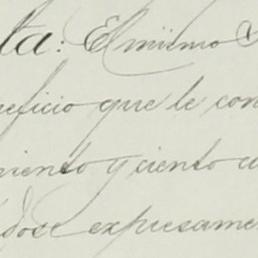 ta: El mismo S
eficio que le con
miento y ciento c
dose expresame